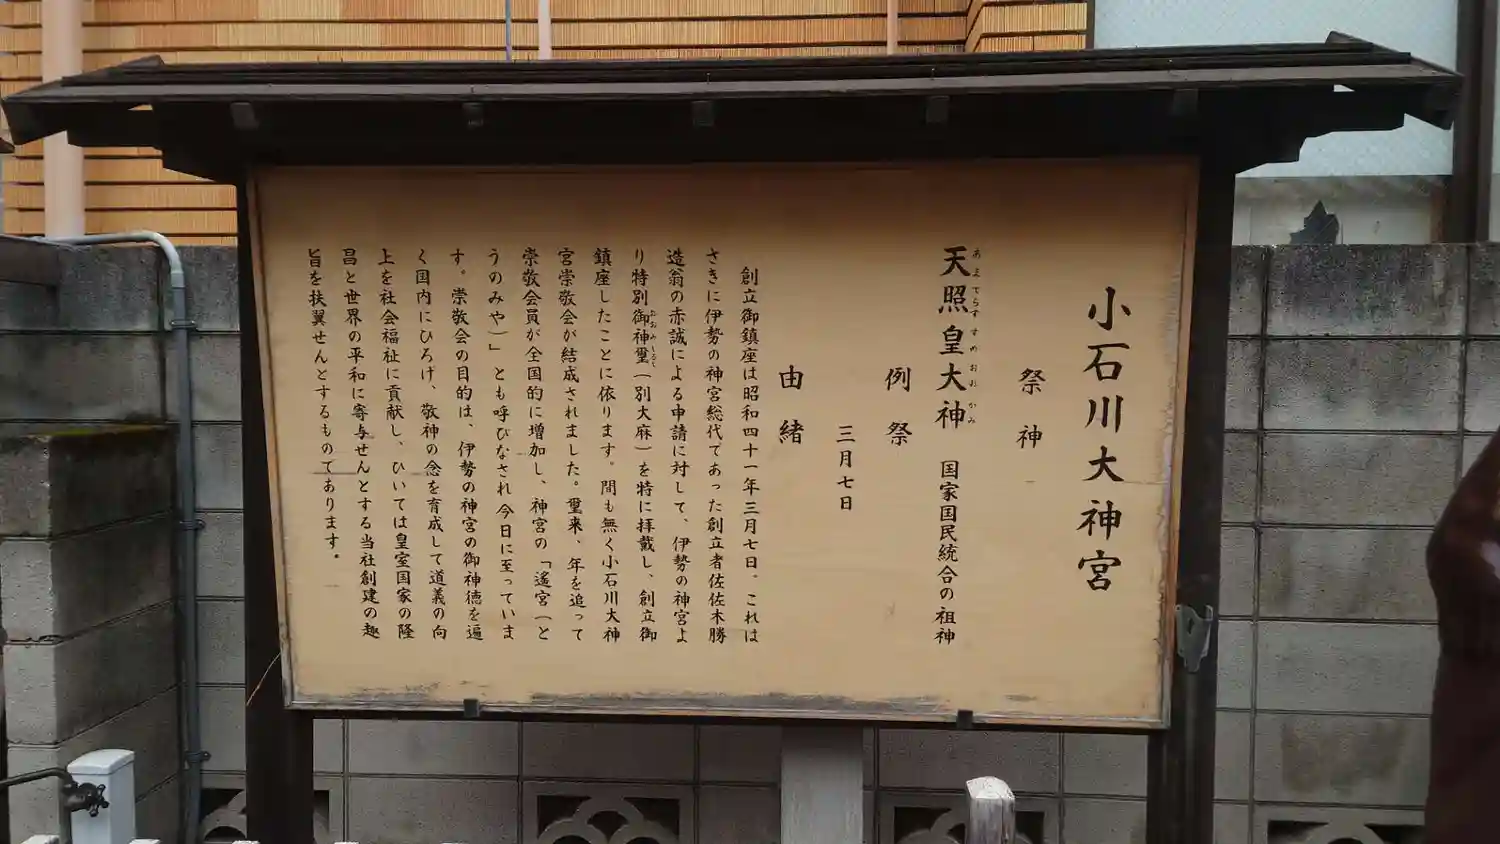 小石川大神宮
祭神
天照皇大神 国家国民統合の祖神
あまてらすすめおおかみ
例祭
三月七日
由緒
創立御鎮座は昭和四十一年三月七日。これは
さきに伊勢の神宮総代であった創立者佐佐木勝
造翁の赤誠による申請に対して、伊勢の神宮よ
り特別御神璽(別大麻)を特に拝戴し、創立御
おおみしるし
鎮座したことに依ります。間も無く小石川大神
宮崇敬会が結成されました。重来、年を追って
崇敬会員が全国的に増加し、神宮の「遙宮(と
うのみや)」とも呼びなされ今日に至っていま
す。崇敬会の目的は、伊勢の神宮の御神徳を遍
く国内にひろげ、敬神の念を育成して道義の向
上を社会福祉に貢献し、ひいては皇室国家の隆
昌と世界の平和に寄与せんとする当社創建の趣
旨を扶翼せんとするものであります。